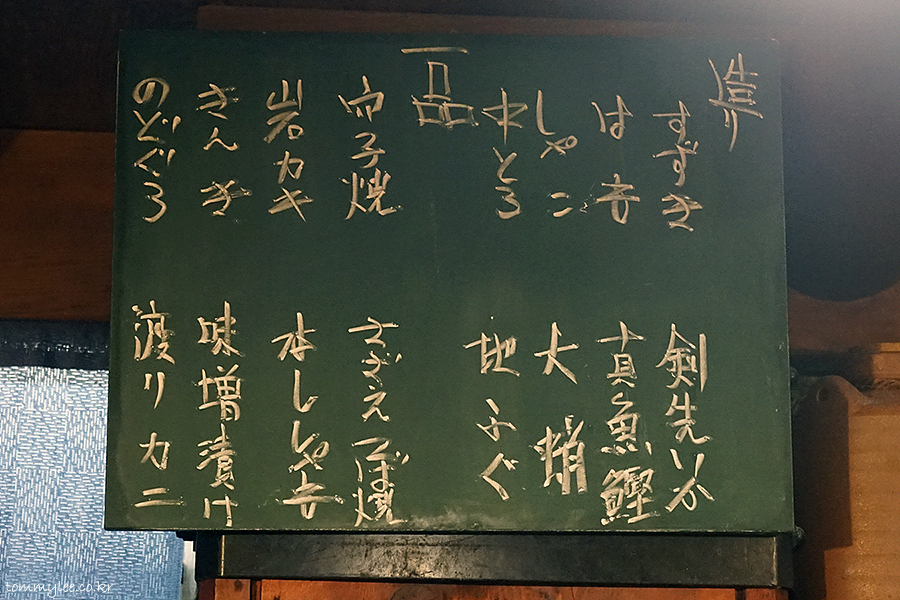 造り
すずき
剣先いか
はも
真魚鰹
しゃこ
大蛸
中とろ
地ふぐ
一品
子焼
さざえつぼ焼
岩カキ
本ししゃも
きんき
味増漬け
のどぐろ
渡りカニ
tommylee.co.kr